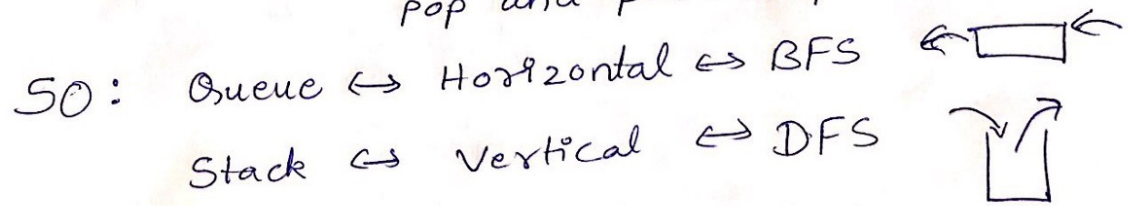 pop and p
SO: Queue ↔ Horizontal ↔ BFS
Stack ↔ Vertical ↔ DFS